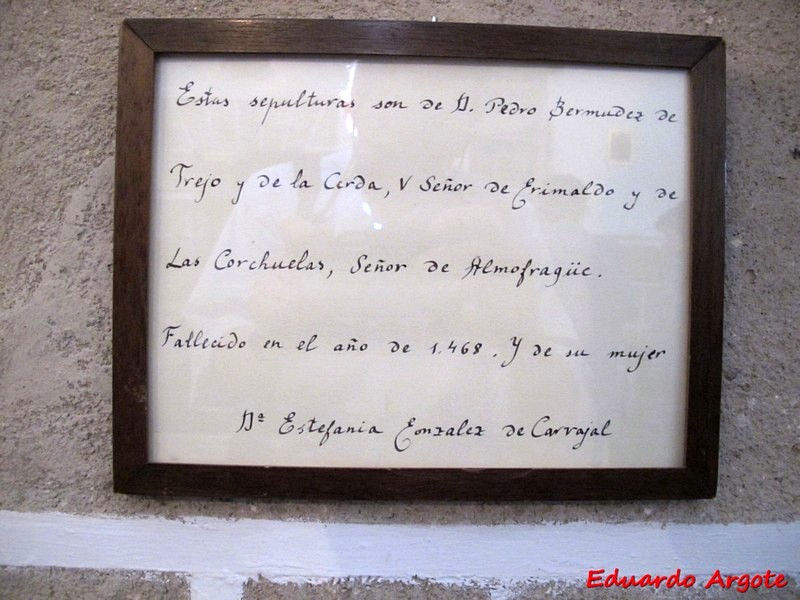 Estas sepulturas son de D. Pedro Bermudez de
Trejo y de la Cerda, V Señor de Grimaldo y de
Las Corchuelas, Señor de Almofragüe.
Fallecido en el año de 1.468. Y de su mujer
Dª Estefania Gonzalez de Carvajal
Eduardo Argote